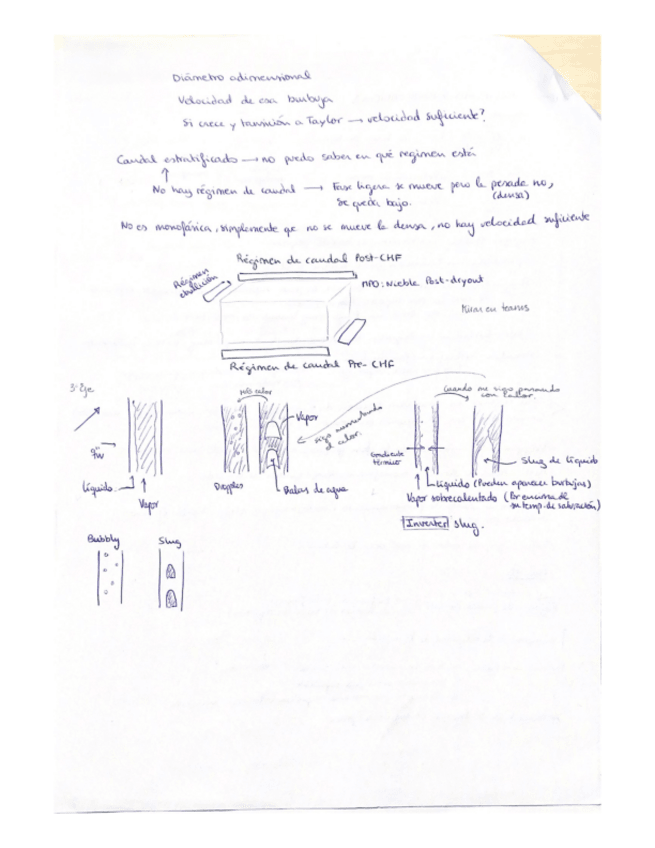 Diámetro adimensional
Velocidad de esa burbuja
Si crece y transición a Taylor → velocidad suficiente?
Caudal estratificado → no puedo saber en qué regimen está
↑
No hay régimen de caudal → Fase ligera se mueve pero la pesada no,
(densa)
se queda bajo.
No es monofásica, simplemente que no se mueve la densa, no hay velocidad suficiente
Régimen de caudal Post-CHF
Régimen ebullición
MPD: Niebla Post-dryout
Mirar en teams
Régimen de caudal Pre-CHF
3º Eje
más calor
Cuando me sigo pasando
con el calor.
Vapor
sigo aumentando
el calor.
Gradiente
térmico
Slug de líquido
Líquido
Vapor
Balas de agua
Líquido (Pueden aparecer burbujas)
Vapor sobrecalentado (Por encima de
su temp. de saturación)
Inverter slug.
Bubbly
Slug